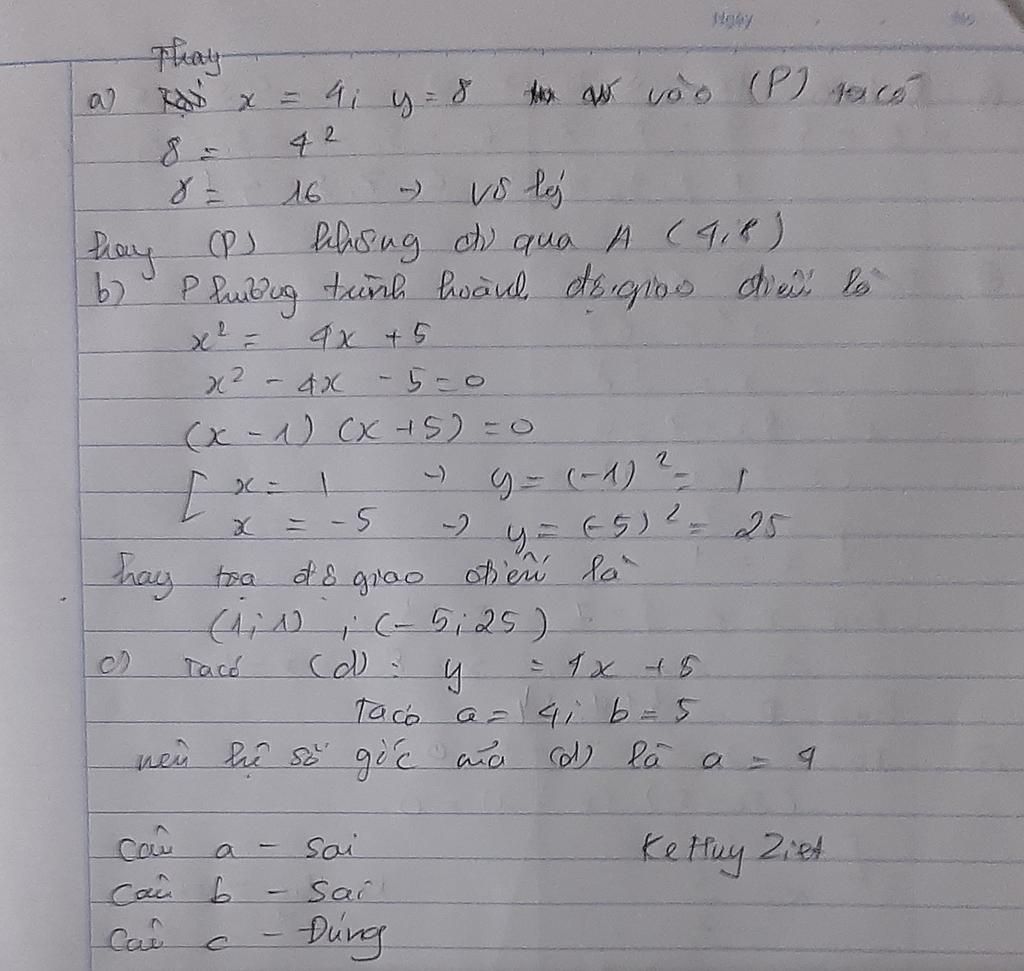 Ngày No
Thay
a) x = 4; y = 8 vào (P) ta có
8 = 4²
8 = 16 → vô lý
hay (P) không đi qua A (4;8)
b) Phương trình hoành độ giao điểm là
x² = 4x + 5
x² - 4x - 5 = 0
(x - 1) (x + 5) = 0
[ x = 1 → y = (-1)² = 1
x = -5 → y = (-5)² = 25
hay toạ độ giao điểm là
(1;1) ; (-5;25)
c) Ta có (d): y = 4x + 5
Ta có a = 4; b = 5
nên hệ số góc của (d) là a = 4
Câu a - Sai KeHuy Ziet
Câu b - Sai
Câu c - Đúng